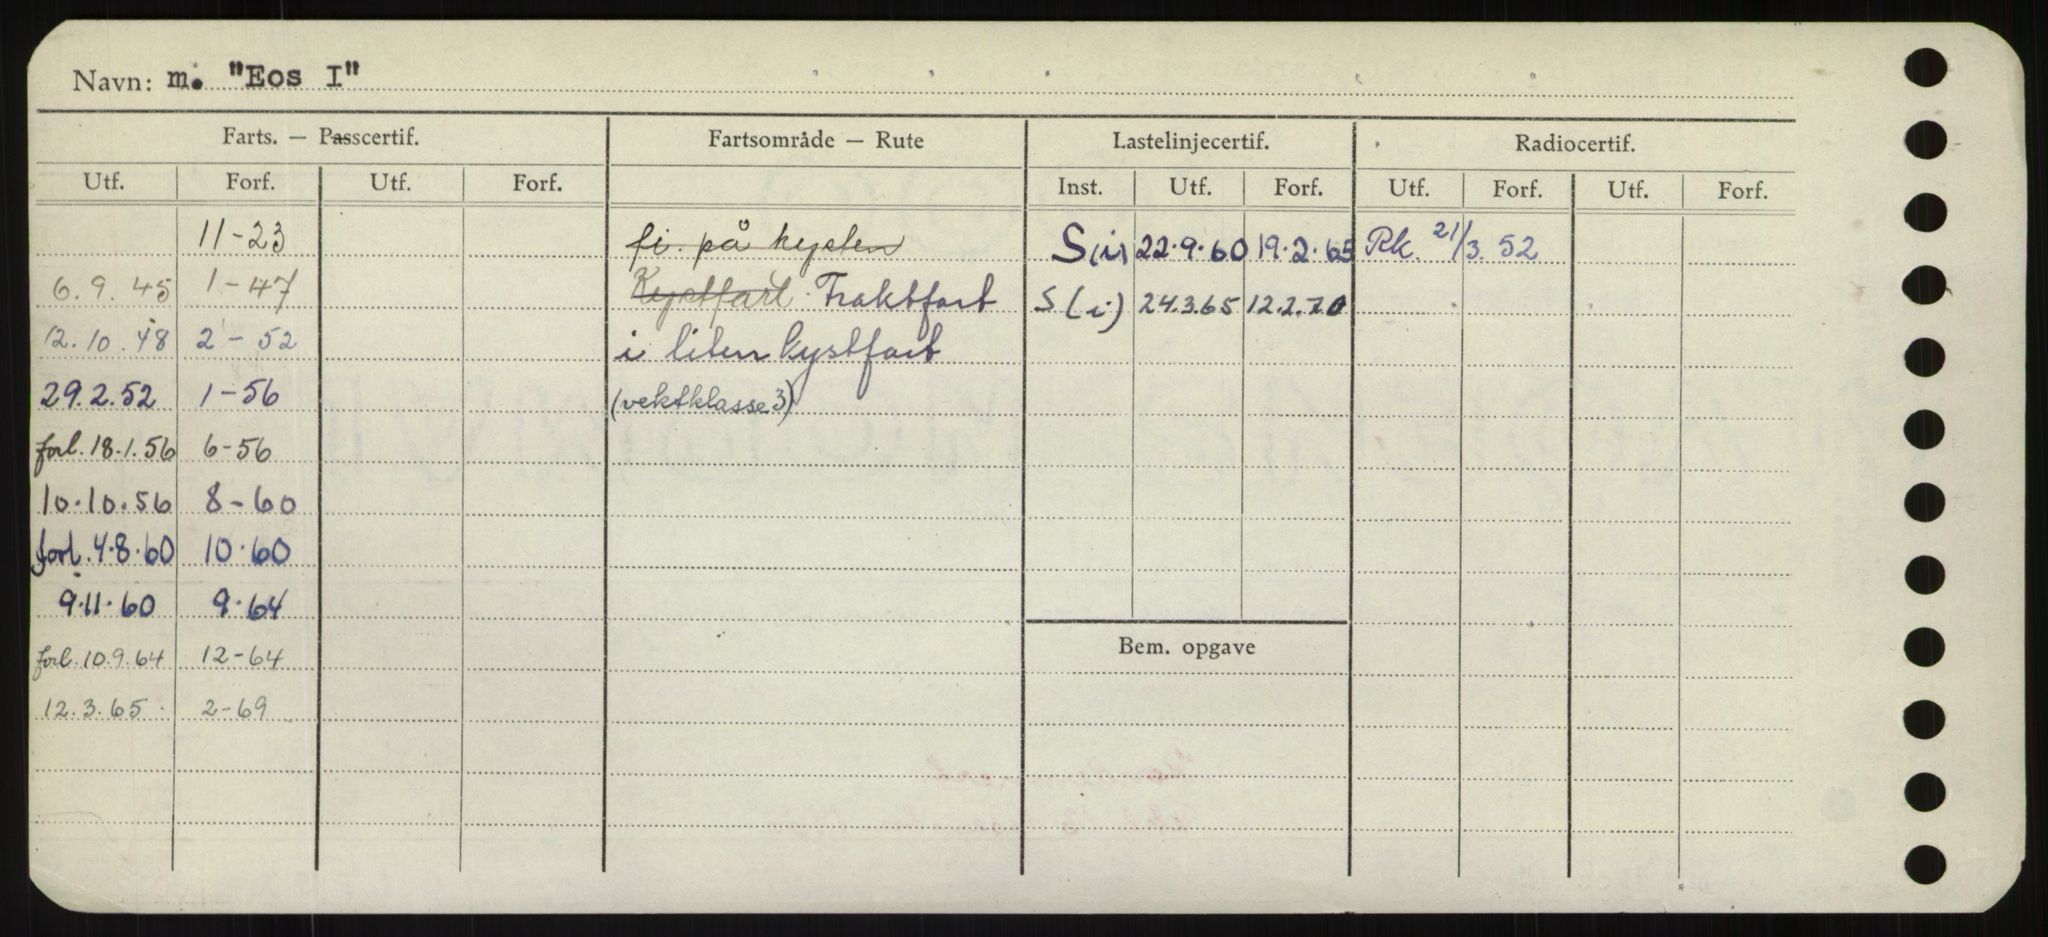 Navn: m. "Eos I"
Farts. — Passcertif. Fartsområde — Rute Lastelinjecertif. Radiocertif.
Utf. Forf. Utf. Forf. Inst. Utf. Forf. Utf. Forf. Utf. Forf.
11-23 fi. på kysten S(i) 22.9.60 19.2.65 Rk. 21/3.52
6.9.45 1-47 Kystfart. Fraktfart S(i) 24.3.65 12.2.70
12.10.48 2-52 i liten kystfart
29.2.52 1-56 (vektklasse 3)
forl. 18.1.56 6-56
10.10.56 8-60
forl. 4.8.60 10.60
9.11.60 9.64
Bem. opgave
forl. 10.9.64 12-64
12.3.65 2-69